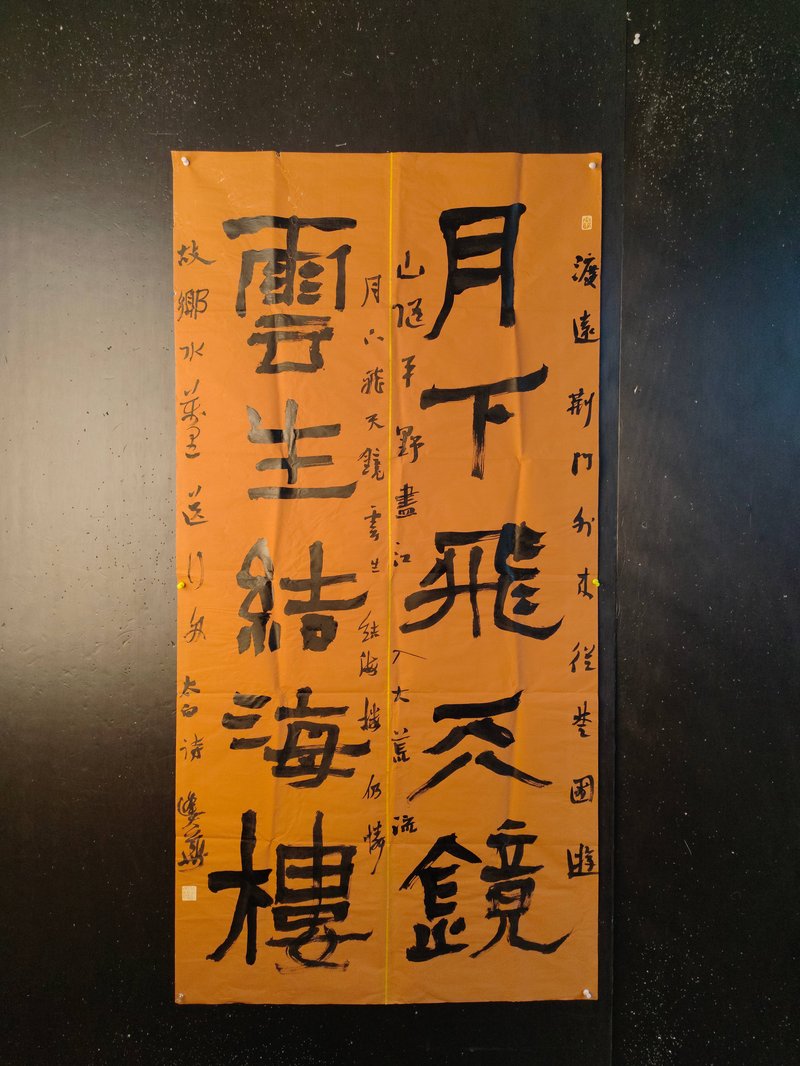 渡遠荆門外来從楚國遊
月下飛天鏡
山随平野盡江入大荒流
月下飛天鏡雲生結海樓仍憐
雲生結海樓
故鄉水萬里送行舟 太白詩